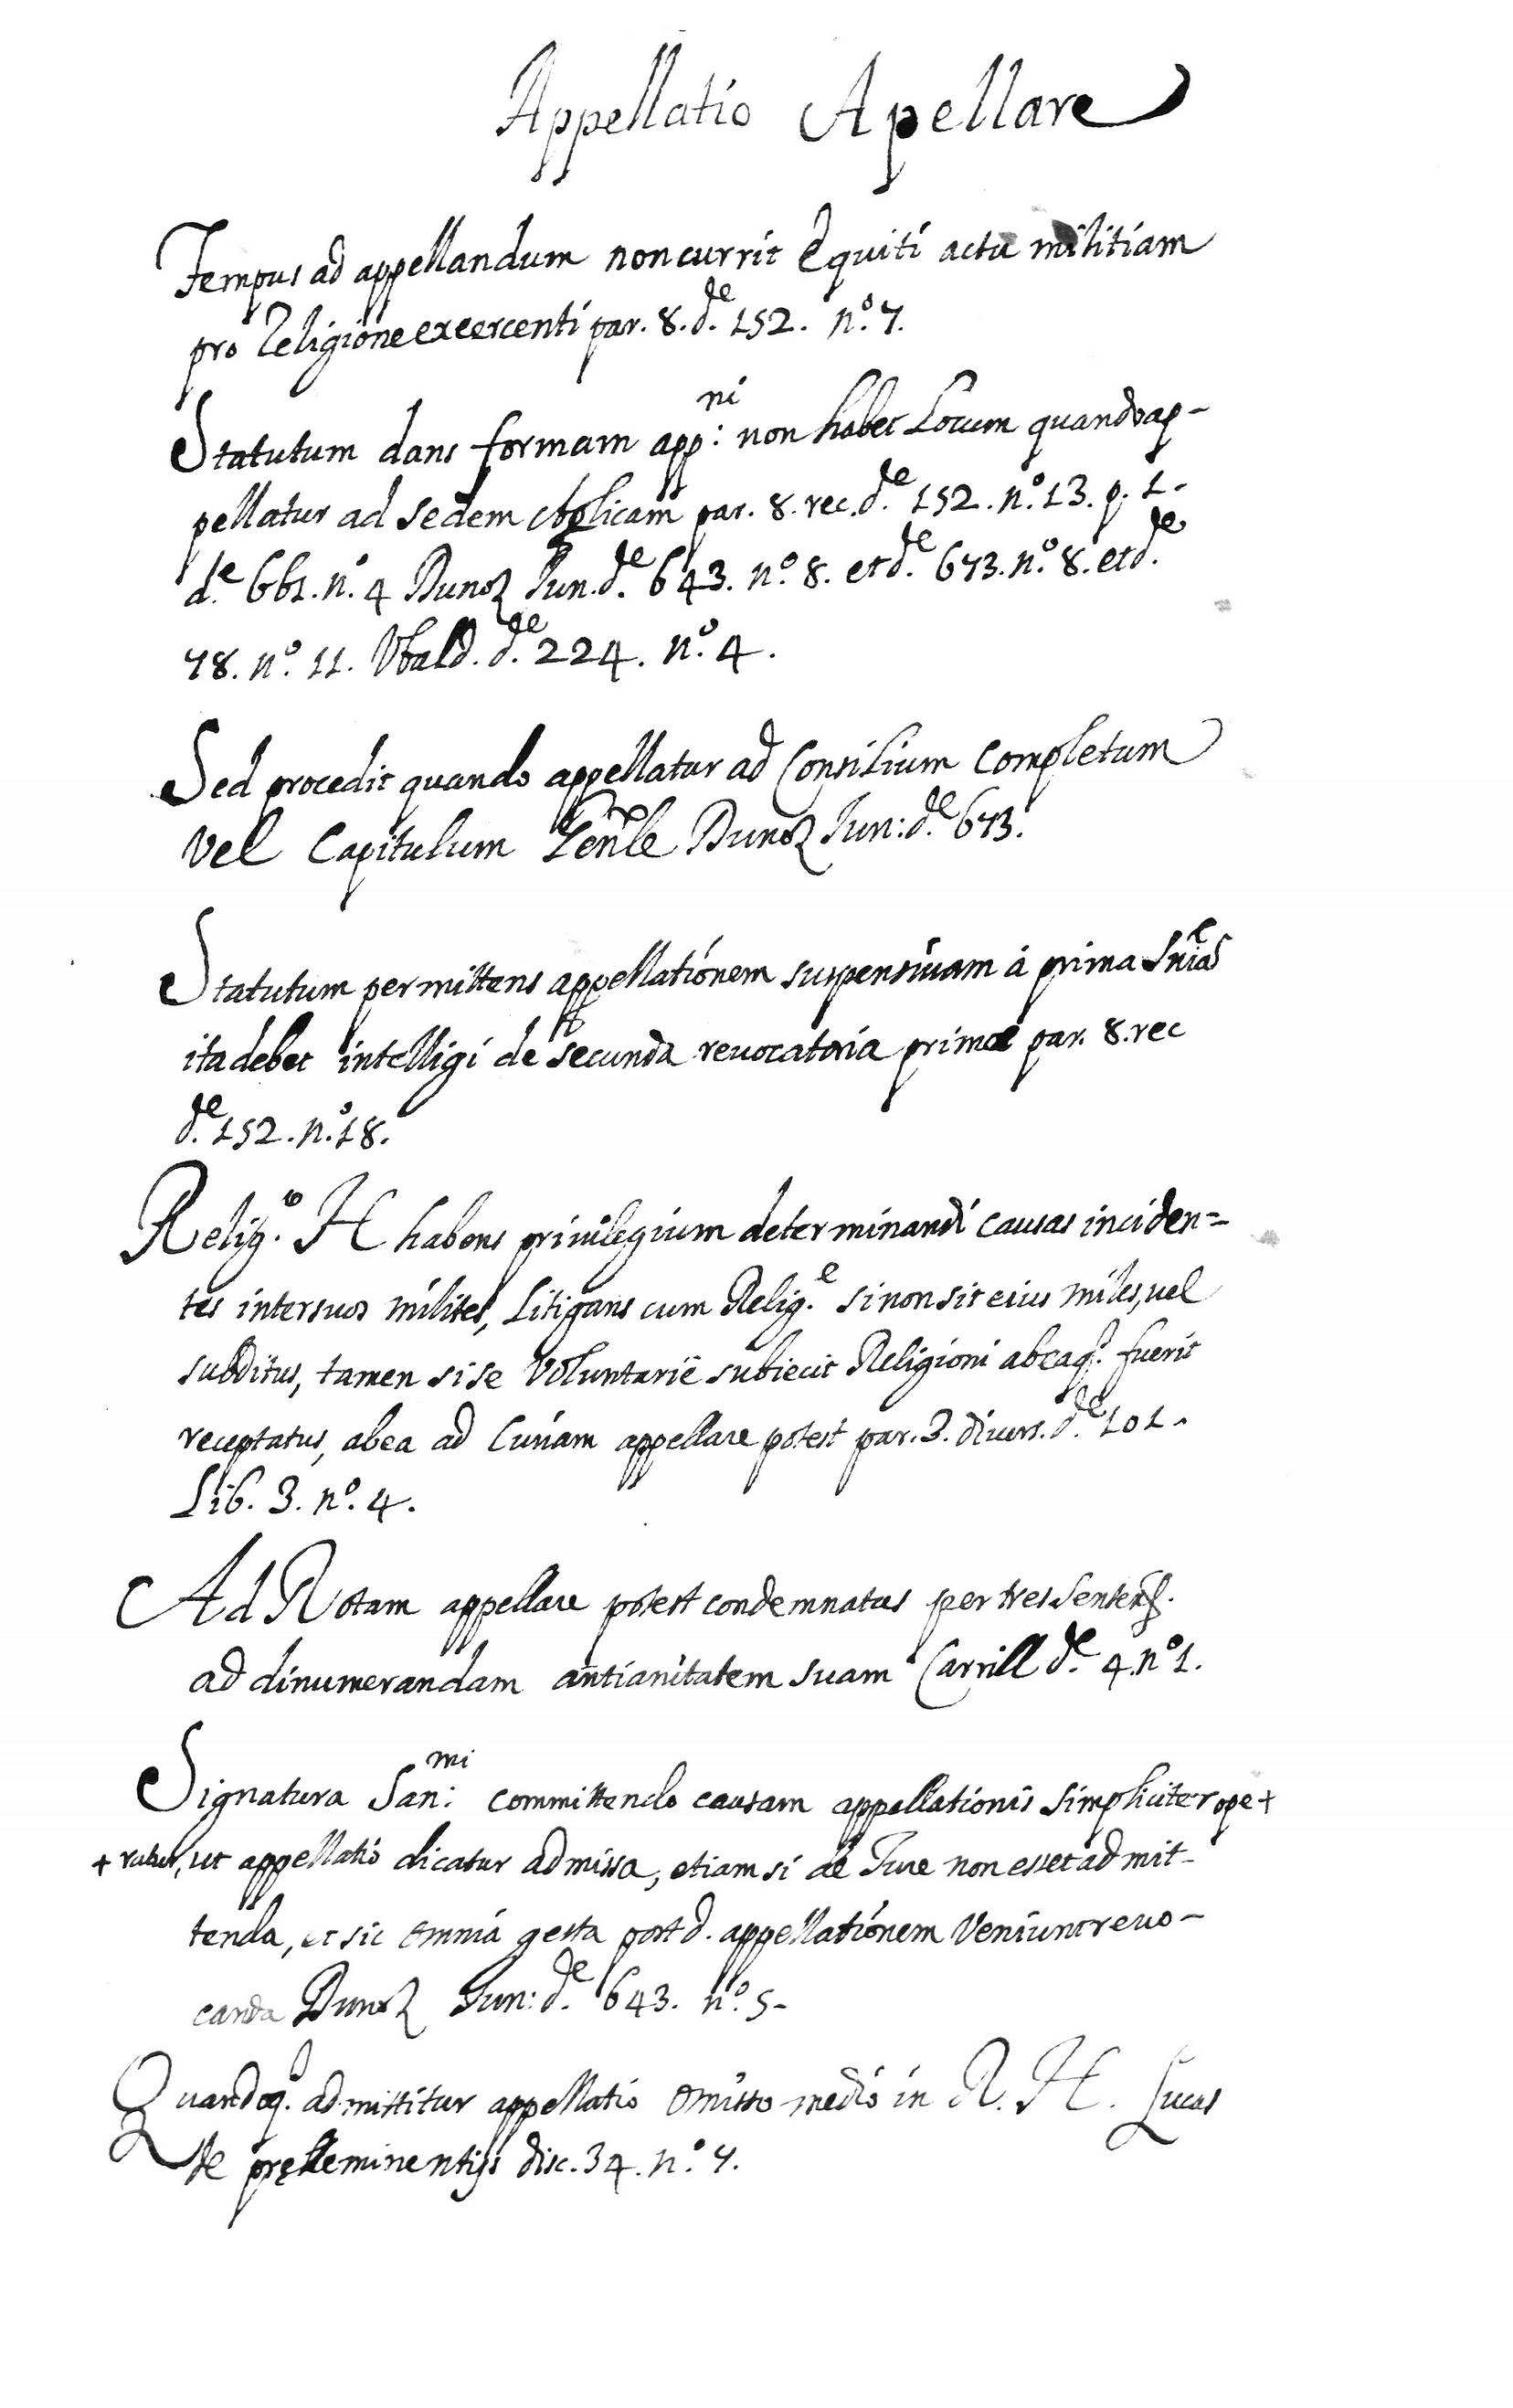 Appellatio Apellare
Tempus ad appellandum non currit Equiti actu militiam
pro Religione excercenti par. 8. d.e 152. n.o 7.
Statutum dans formam app:ni non habet Locum quando ap-
pellatur ad sedem Aplicam par. 8. rec. d.e 152. n.o 13. p. 1.
d.e 661. n.o 4 Dunoz Jun. d.e 643. n.o 8. et d.e 673. n.o 8. et d.e
78. n.o 11. Vbald. d.e 224. n.o 4.
Sed procedit quando appellatur ad Consilium Completum
Vel Capitulum Genle Dunoz Jun: d.e 673.
Statutum permittens appellationem suspensiuam à prima Snia
ita debet intelligi de secunda reuocatoria primae par. 8. rec
d.e 152. n.o 18.
Relig.o H habens priuilegium determinandi causas inciden=
tes inter suos milites, Litigans cum Relig.e si non sit eius miles, uel
subditus, tamen si se Voluntariè subiecit Religioni ab eaq. fuerit
receptatus, ab ea ad Curiam appellare potest par. 3. diuers. d.e 101.
Lib. 3. n.o 4.
Ad Rotam appellare potest condemnatus per tres Senten.
ad dinumerandam antianitatem suam Carrill d.e 4. n.o 1.
Signatura San:mi committendo causam appellationis simpliciter ope+
+ ratur, ut appellatio dicatur admissa, etiam si de Jure non esset admit-
tenda, et sic omnia gesta post d. appellationem Veniunt reuo-
canda Dunoz Jun: d.e 643. n.o 5-
Quandoq. admittitur appellatio omisso medio in R. H. Lucas
de pręeminentijs disc. 34. n.o 7.